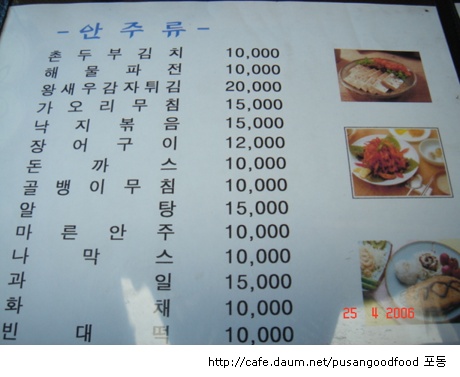 - 안주류 -
촌두부김치 10,000
해물파전 10,000
왕새우감자튀김 20,000
가오리무침 15,000
낙지볶음 15,000
장어구이 12,000
돈까스 10,000
골뱅이무침 10,000
알탕 15,000
마른안주 10,000
나막스 10,000
과일 15,000
화채 10,000
빈대떡 10,000
25 4 2006
http://cafe.daum.net/pusangoodfood 포동